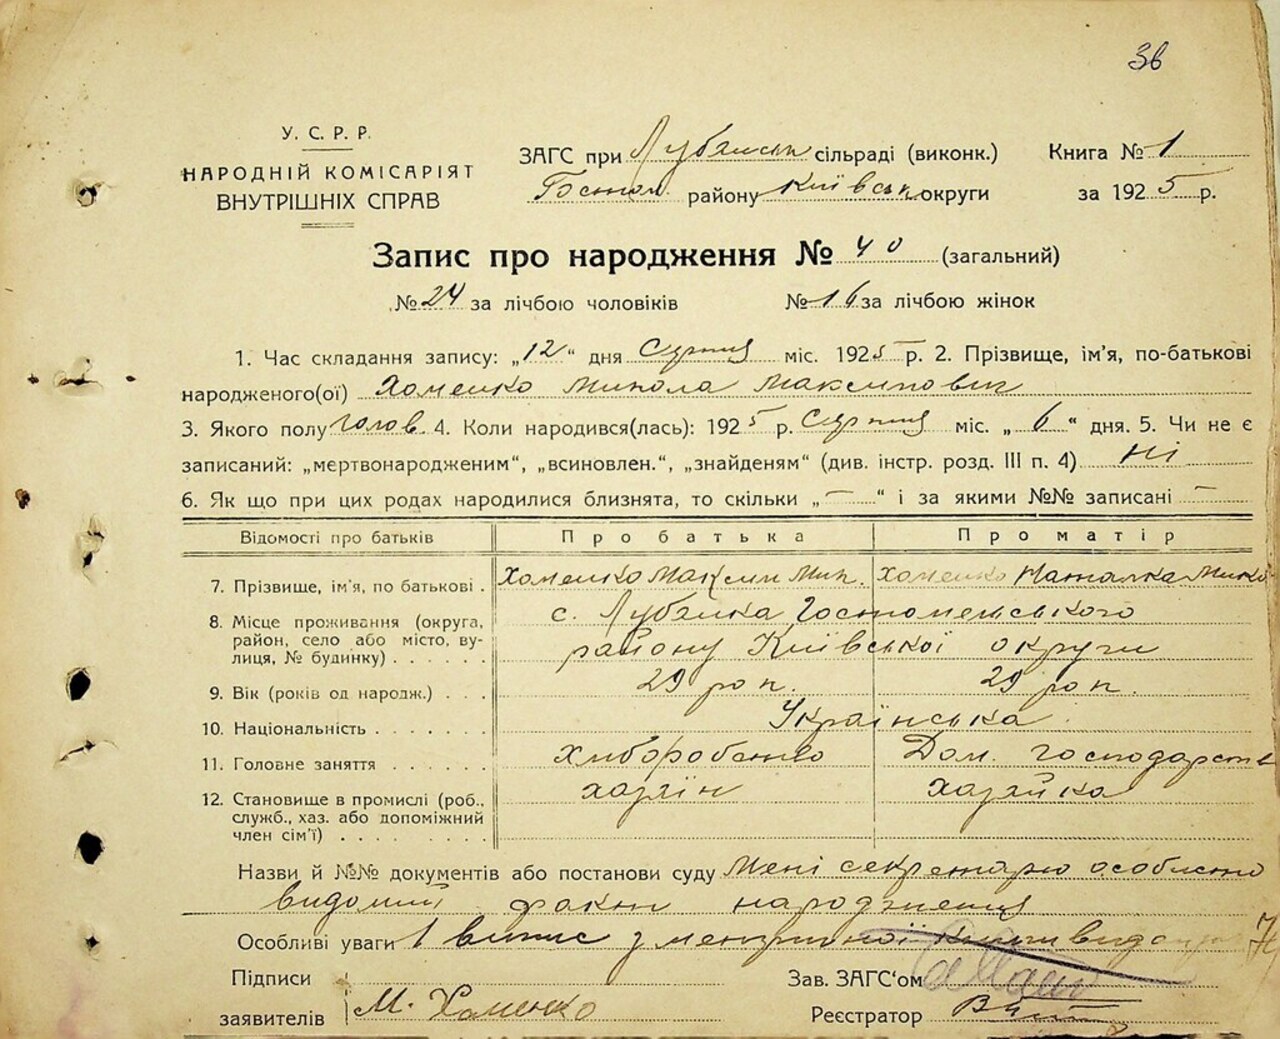 36
У. С. Р. Р.
НАРОДНІЙ КОМІСАРІЯТ
ВНУТРІШНІХ СПРАВ
ЗАГС при Лубянськ сільраді (виконк.)
Гостом. району Київськ округи
Книга № 1
за 1925 р.
Запис про народження № 40 (загальний)
№ 24 за лічбою чоловіків № 16 за лічбою жінок
1. Час складання запису: „12“ дня Серпня міс. 1925 р. 2. Прізвище, ім’я, по-батькові
народженого(ої) Хоменко Микола Максимович
3. Якого полу чолов. 4. Коли народився(лась): 1925 р. Серпня міс. „6“ дня. 5. Чи не є
записаний: „мертвонародженим“, „всиновлен.“, „знайденям“ (див. інстр. розд. III п. 4) Ні
6. Як що при цих родах народилися близнята, то скільки „—“ і за якими №№ записані —
Відомості про батьків Про батька Про матір
7. Прізвище, ім’я, по батькові . Хоменко Максим Мик. Хоменко Наталка Мико
8. Місце проживання (округа, район, село або місто, вулиця, № будинку) . . . . . .
с. Лубянка Гостомельського
району Київської округи
9. Вік (років од народж.) . . . 29 рок. 29 рок.
10. Національність . . . . . . . Українська.
11. Головне заняття . . . . . . хліборобство Дом. господарств
12. Становище в промислі (роб., служб., хаз. або допоміжний член сім’ї) . . . . . . . .
хазяїн хазяйка
Назви й №№ документів або постанови суду Мені секретарю особисто
видомий факт народження
Особливі уваги 1 випис з метричної книги
Підписи
заявителів М. Хоменко
Зав. ЗАГС‘ом
Реєстратор